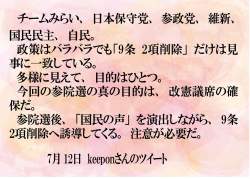 チームみらい、日本保守党、参政党、維新、
国民民主、自民。
政策はバラバラでも「9条 2項削除」だけは見
事に一致している。
多様に見えて、目的はひとつ。
今回の参院選の真の目的は、改憲議席の確
保だ。
参院選後、「国民の声」を演出しながら、9条
2項削除へ誘導してくる。注意が必要だ。
7月12日 keeponさんのツイート